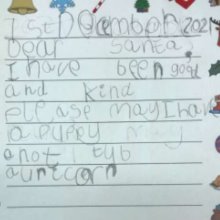 1st December 2021
Dear Santa,
I have been good
and kind
please may I hav
a puppy
a not tyb
a unicorn